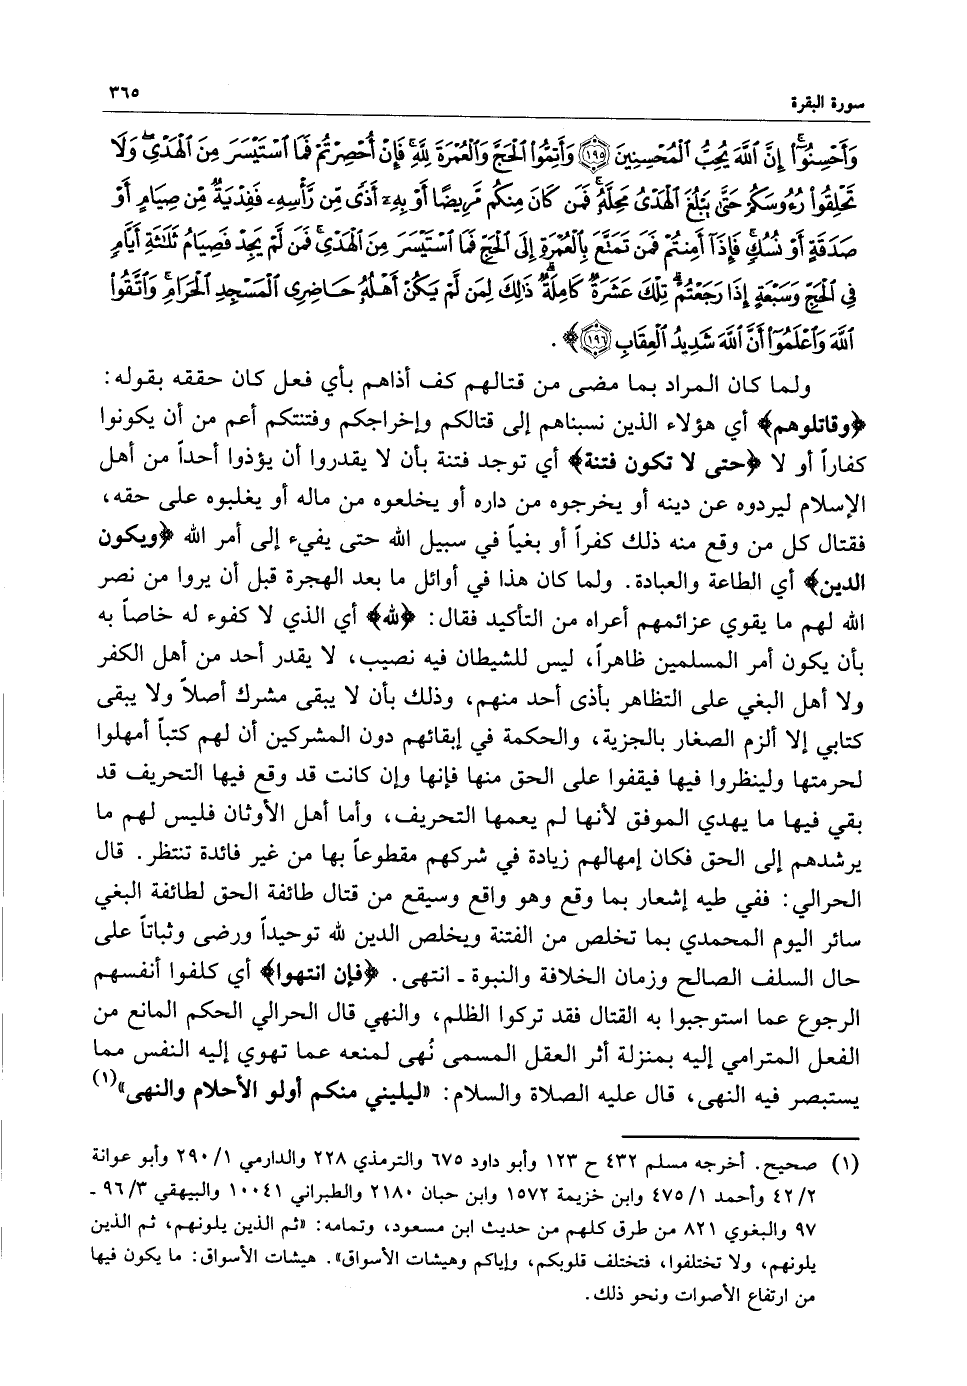 سورة البقرة ٣٦٥
وَأَحْسِنُوٓا۟ إِنَّ ٱللَّهَ يُحِبُّ ٱلْمُحْسِنِينَ ﴿١٩٥﴾ وَأَتِمُّوا۟ ٱلْحَجَّ وَٱلْعُمْرَةَ لِلَّهِ فَإِنْ أُحْصِرْتُمْ فَمَا ٱسْتَيْسَرَ مِنَ ٱلْهَدْىِ وَلَا
تَحْلِقُوا۟ رُءُوسَكُمْ حَتَّىٰ يَبْلُغَ ٱلْهَدْىُ مَحِلَّهُۥ فَمَن كَانَ مِنكُم مَّرِيضًا أَوْ بِهِۦٓ أَذًى مِّن رَّأْسِهِۦ فَفِدْيَةٌ مِّن صِيَامٍ أَوْ
صَدَقَةٍ أَوْ نُسُكٍ فَإِذَآ أَمِنتُمْ فَمَن تَمَتَّعَ بِٱلْعُمْرَةِ إِلَى ٱلْحَجِّ فَمَا ٱسْتَيْسَرَ مِنَ ٱلْهَدْىِ فَمَن لَّمْ يَجِدْ فَصِيَامُ ثَلَٰثَةِ أَيَّامٍ
فِى ٱلْحَجِّ وَسَبْعَةٍ إِذَا رَجَعْتُمْ تِلْكَ عَشَرَةٌ كَامِلَةٌ ذَٰلِكَ لِمَن لَّمْ يَكُنْ أَهْلُهُۥ حَاضِرِى ٱلْمَسْجِدِ ٱلْحَرَامِ وَٱتَّقُوا۟
ٱللَّهَ وَٱعْلَمُوٓا۟ أَنَّ ٱللَّهَ شَدِيدُ ٱلْعِقَابِ ﴿١٩٦﴾﴾ .
ولما كان المراد بما مضى من قتالهم كف أذاهم بأي فعل كان حققه بقوله:
﴿وقاتلوهم﴾ أي هؤلاء الذين نسبناهم إلى قتالكم وإخراجكم وفتنتكم أعم من أن يكونوا
كفاراً أو لا ﴿حتى لا تكون فتنة﴾ أي توجد فتنة بأن لا يقدروا أن يؤذوا أحداً من أهل
الإسلام ليردوه عن دينه أو يخرجوه من داره أو يخلعوه من ماله أو يغلبوه على حقه،
فقتال كل من وقع منه ذلك كفراً أو بغياً في سبيل الله حتى يفيء إلى أمر الله ﴿ويكون
الدين﴾ أي الطاعة والعبادة. ولما كان هذا في أوائل ما بعد الهجرة قبل أن يروا من نصر
الله لهم ما يقوي عزائمهم أعراه من التأكيد فقال: ﴿لله﴾ أي الذي لا كفوء له خاصاً به
بأن يكون أمر المسلمين ظاهراً، ليس للشيطان فيه نصيب، لا يقدر أحد من أهل الكفر
ولا أهل البغي على التظاهر بأذى أحد منهم، وذلك بأن لا يبقى مشرك أصلاً ولا يبقى
كتابي إلا ألزم الصغار بالجزية، والحكمة في إبقائهم دون المشركين أن لهم كتباً أمهلوا
لحرمتها ولينظروا فيها فيقفوا على الحق منها فإنها وإن كانت قد وقع فيها التحريف قد
بقي فيها ما يهدي الموفق لأنها لم يعمها التحريف، وأما أهل الأوثان فليس لهم ما
يرشدهم إلى الحق فكان إمهالهم زيادة في شركهم مقطوعاً بها من غير فائدة تنتظر. قال
الحرالي: ففي طيه إشعار بما وقع وهو واقع وسيقع من قتال طائفة الحق لطائفة البغي
سائر اليوم المحمدي بما تخلص من الفتنة ويخلص الدين لله توحيداً ورضى وثباتاً على
حال السلف الصالح وزمان الخلافة والنبوة ـ انتهى. ﴿فإن انتهوا﴾ أي كلفوا أنفسهم
الرجوع عما استوجبوا به القتال فقد تركوا الظلم، والنهي قال الحرالي الحكم المانع من
الفعل المترامي إليه بمنزلة أثر العقل المسمى نُهى لمنعه عما تهوي إليه النفس مما
يستبصر فيه النهى، قال عليه الصلاة والسلام: «ليليني منكم أولو الأحلام والنهى»(١)
(١) صحيح. أخرجه مسلم ٤٣٢ ح ١٢٣ وأبو داود ٦٧٥ والترمذي ٢٢٨ والدارمي ١/ ٢٩٠ وأبو عوانة
٢/ ٤٢ وأحمد ١/ ٤٧٥ وابن خزيمة ١٥٧٢ وابن حبان ٢١٨٠ والطبراني ١٠٠٤١ والبيهقي ٣/ ٩٦ ـ
٩٧ والبغوي ٨٢١ من طرق كلهم من حديث ابن مسعود، وتمامه: «ثم الذين يلونهم، ثم الذين
يلونهم، ولا تختلفوا، فتختلف قلوبكم، وإياكم وهيشات الأسواق». هيشات الأسواق: ما يكون فيها
من ارتفاع الأصوات ونحو ذلك.